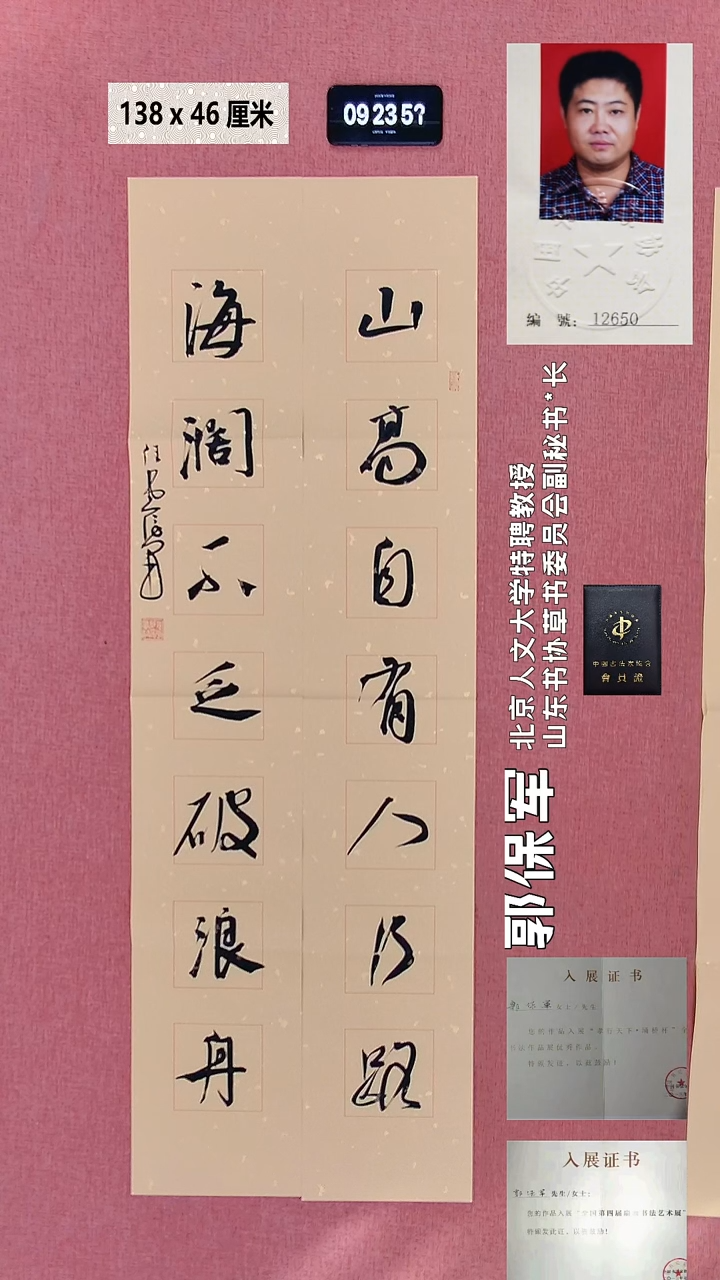 138 x 46 厘米
09 23 57
编 號: 12650
山高自有人行路
海阔不乏破浪舟
北京人文大学特聘教授
山东书协草书委员会副秘书*长
郭保军
入展证书
郭保军 女士/先生
特颁发证,以兹鼓励!
入展证书
郭保军 先生/女士:
您的作品入展“全国第四届
书法艺术展”
特颁发此证,以兹鼓励!